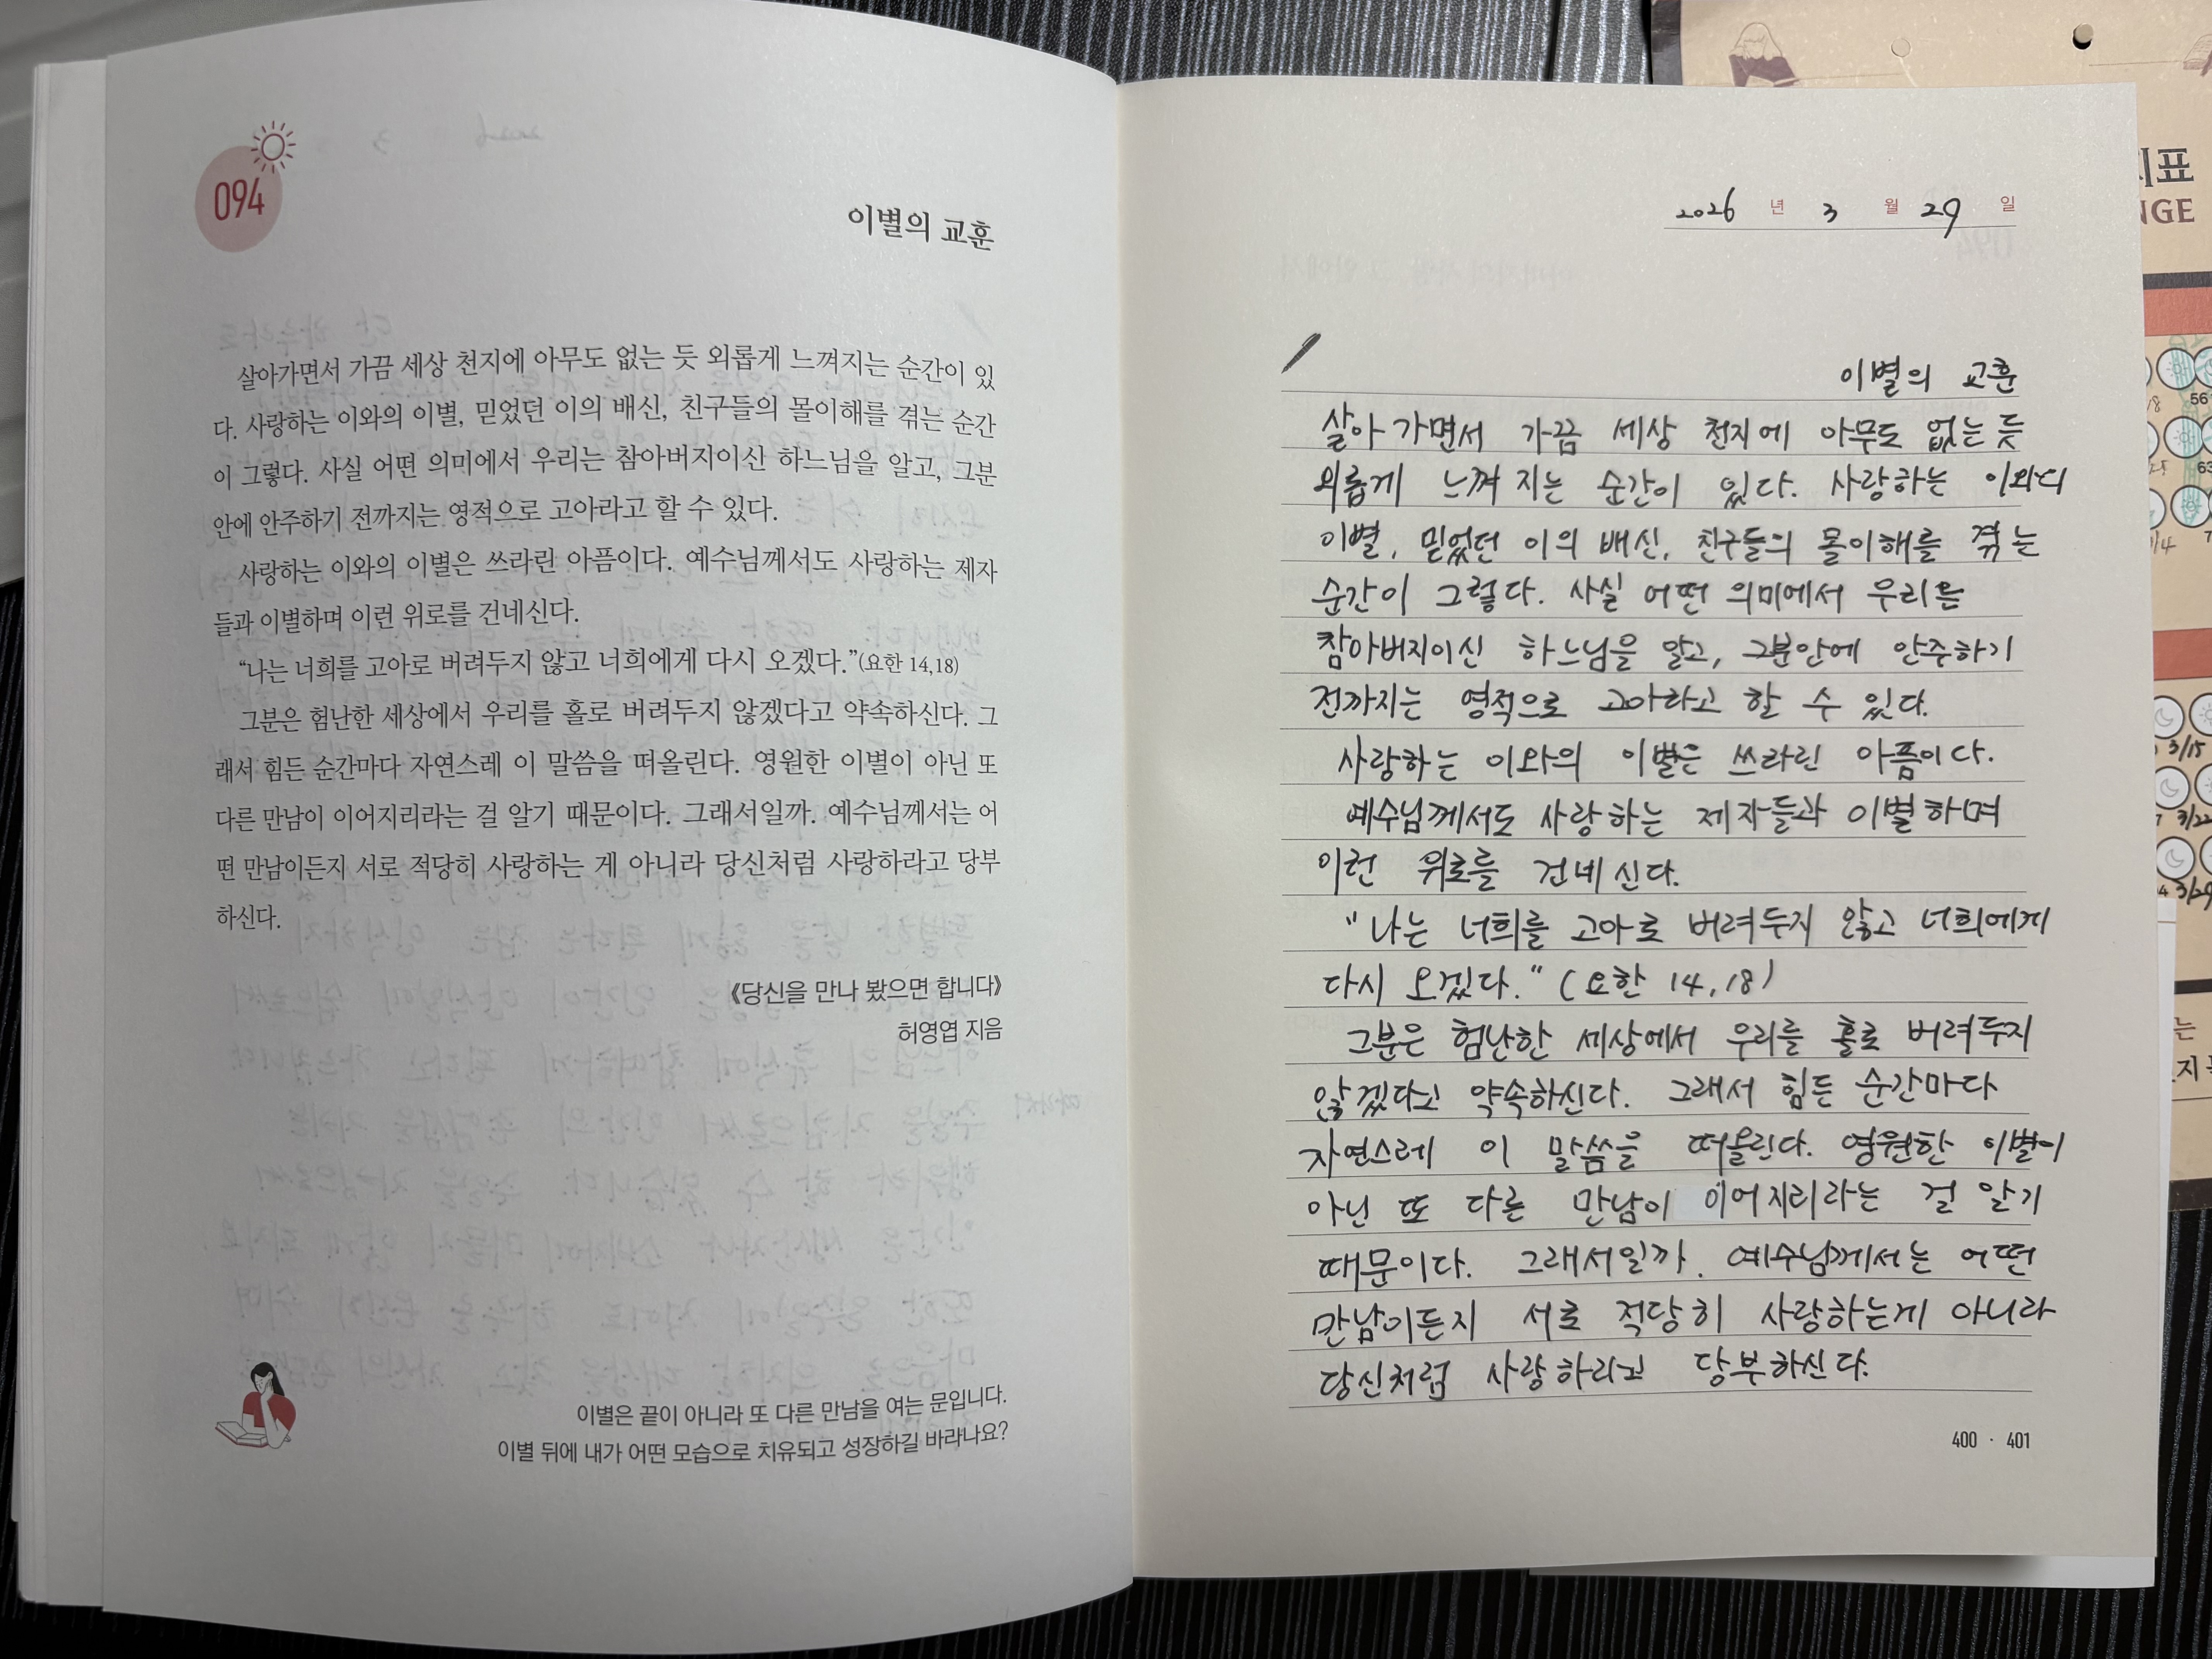 094
이별의 교훈
살아가면서 가끔 세상 천지에 아무도 없는 듯 외롭게 느껴지는 순간이 있
다. 사랑하는 이와의 이별, 믿었던 이의 배신, 친구들의 몰이해를 겪는 순간
이 그렇다. 사실 어떤 의미에서 우리는 참아버지이신 하느님을 알고, 그분
안에 안주하기 전까지는 영적으로 고아라고 할 수 있다.
사랑하는 이와의 이별은 쓰라린 아픔이다. 예수님께서도 사랑하는 제자
들과 이별하며 이런 위로를 건네신다.
“나는 너희를 고아로 버려두지 않고 너희에게 다시 오겠다.”(요한 14,18)
그분은 험난한 세상에서 우리를 홀로 버려두지 않겠다고 약속하신다. 그
래서 힘든 순간마다 자연스레 이 말씀을 떠올린다. 영원한 이별이 아닌 또
다른 만남이 이어지리라는 걸 알기 때문이다. 그래서일까. 예수님께서는 어
떤 만남이든지 서로 적당히 사랑하는 게 아니라 당신처럼 사랑하라고 당부
하신다.
《당신을 만나 봤으면 합니다》
허영엽 지음
이별은 끝이 아니라 또 다른 만남을 여는 문입니다.
이별 뒤에 내가 어떤 모습으로 치유되고 성장하길 바라나요?
2026 년 3 월 29 일
이별의 교훈
살아가면서 가끔 세상 천지에 아무도 없는 듯
외롭게 느껴지는 순간이 있다. 사랑하는 이와의
이별, 믿었던 이의 배신, 친구들의 몰이해를 겪는
순간이 그렇다. 사실 어떤 의미에서 우리는
참아버지이신 하느님을 알고, 그분안에 안주하기
전까지는 영적으로 고아라고 할 수 있다.
사랑하는 이와의 이별은 쓰라린 아픔이다.
예수님께서도 사랑하는 제자들과 이별하며
이런 위로를 건네신다.
"나는 너희를 고아로 버려두지 않고 너희에게
다시 오겠다." (요한 14,18)
그분은 험난한 세상에서 우리를 홀로 버려두지
않겠다고 약속하신다. 그래서 힘든 순간마다
자연스레 이 말씀을 떠올린다. 영원한 이별이
아닌 또 다른 만남이 이어지리라는 걸 알기
때문이다. 그래서일까. 예수님께서는 어떤
만남이든지 서로 적당히 사랑하는게 아니라
당신처럼 사랑하라고 당부하신다.
400 · 401
지표
NGE
56
63
3/15
3/22
3/29
는